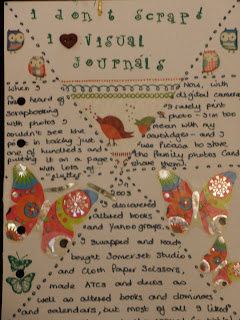 I don't Scrap!
I Visual
Journals
When I
first heard of
Scrapbooking
with photos I
couldn't see the
point in taking just
one of hundreds and
putting it on a page
with lots of
glitter
Now, with
digital camera
I rarely print
a photo - I'm too
mean with my
cartridges - and I
use Picasa to share
the family photos
In
2003
I discovered
altered books
and Yahoo groups.
I swapped and read,
bought Somerset Studio
and Cloth Paper Scissors,
made ATCs and decos as
well as altered books and dominoes
and calendars, but most of all I liked